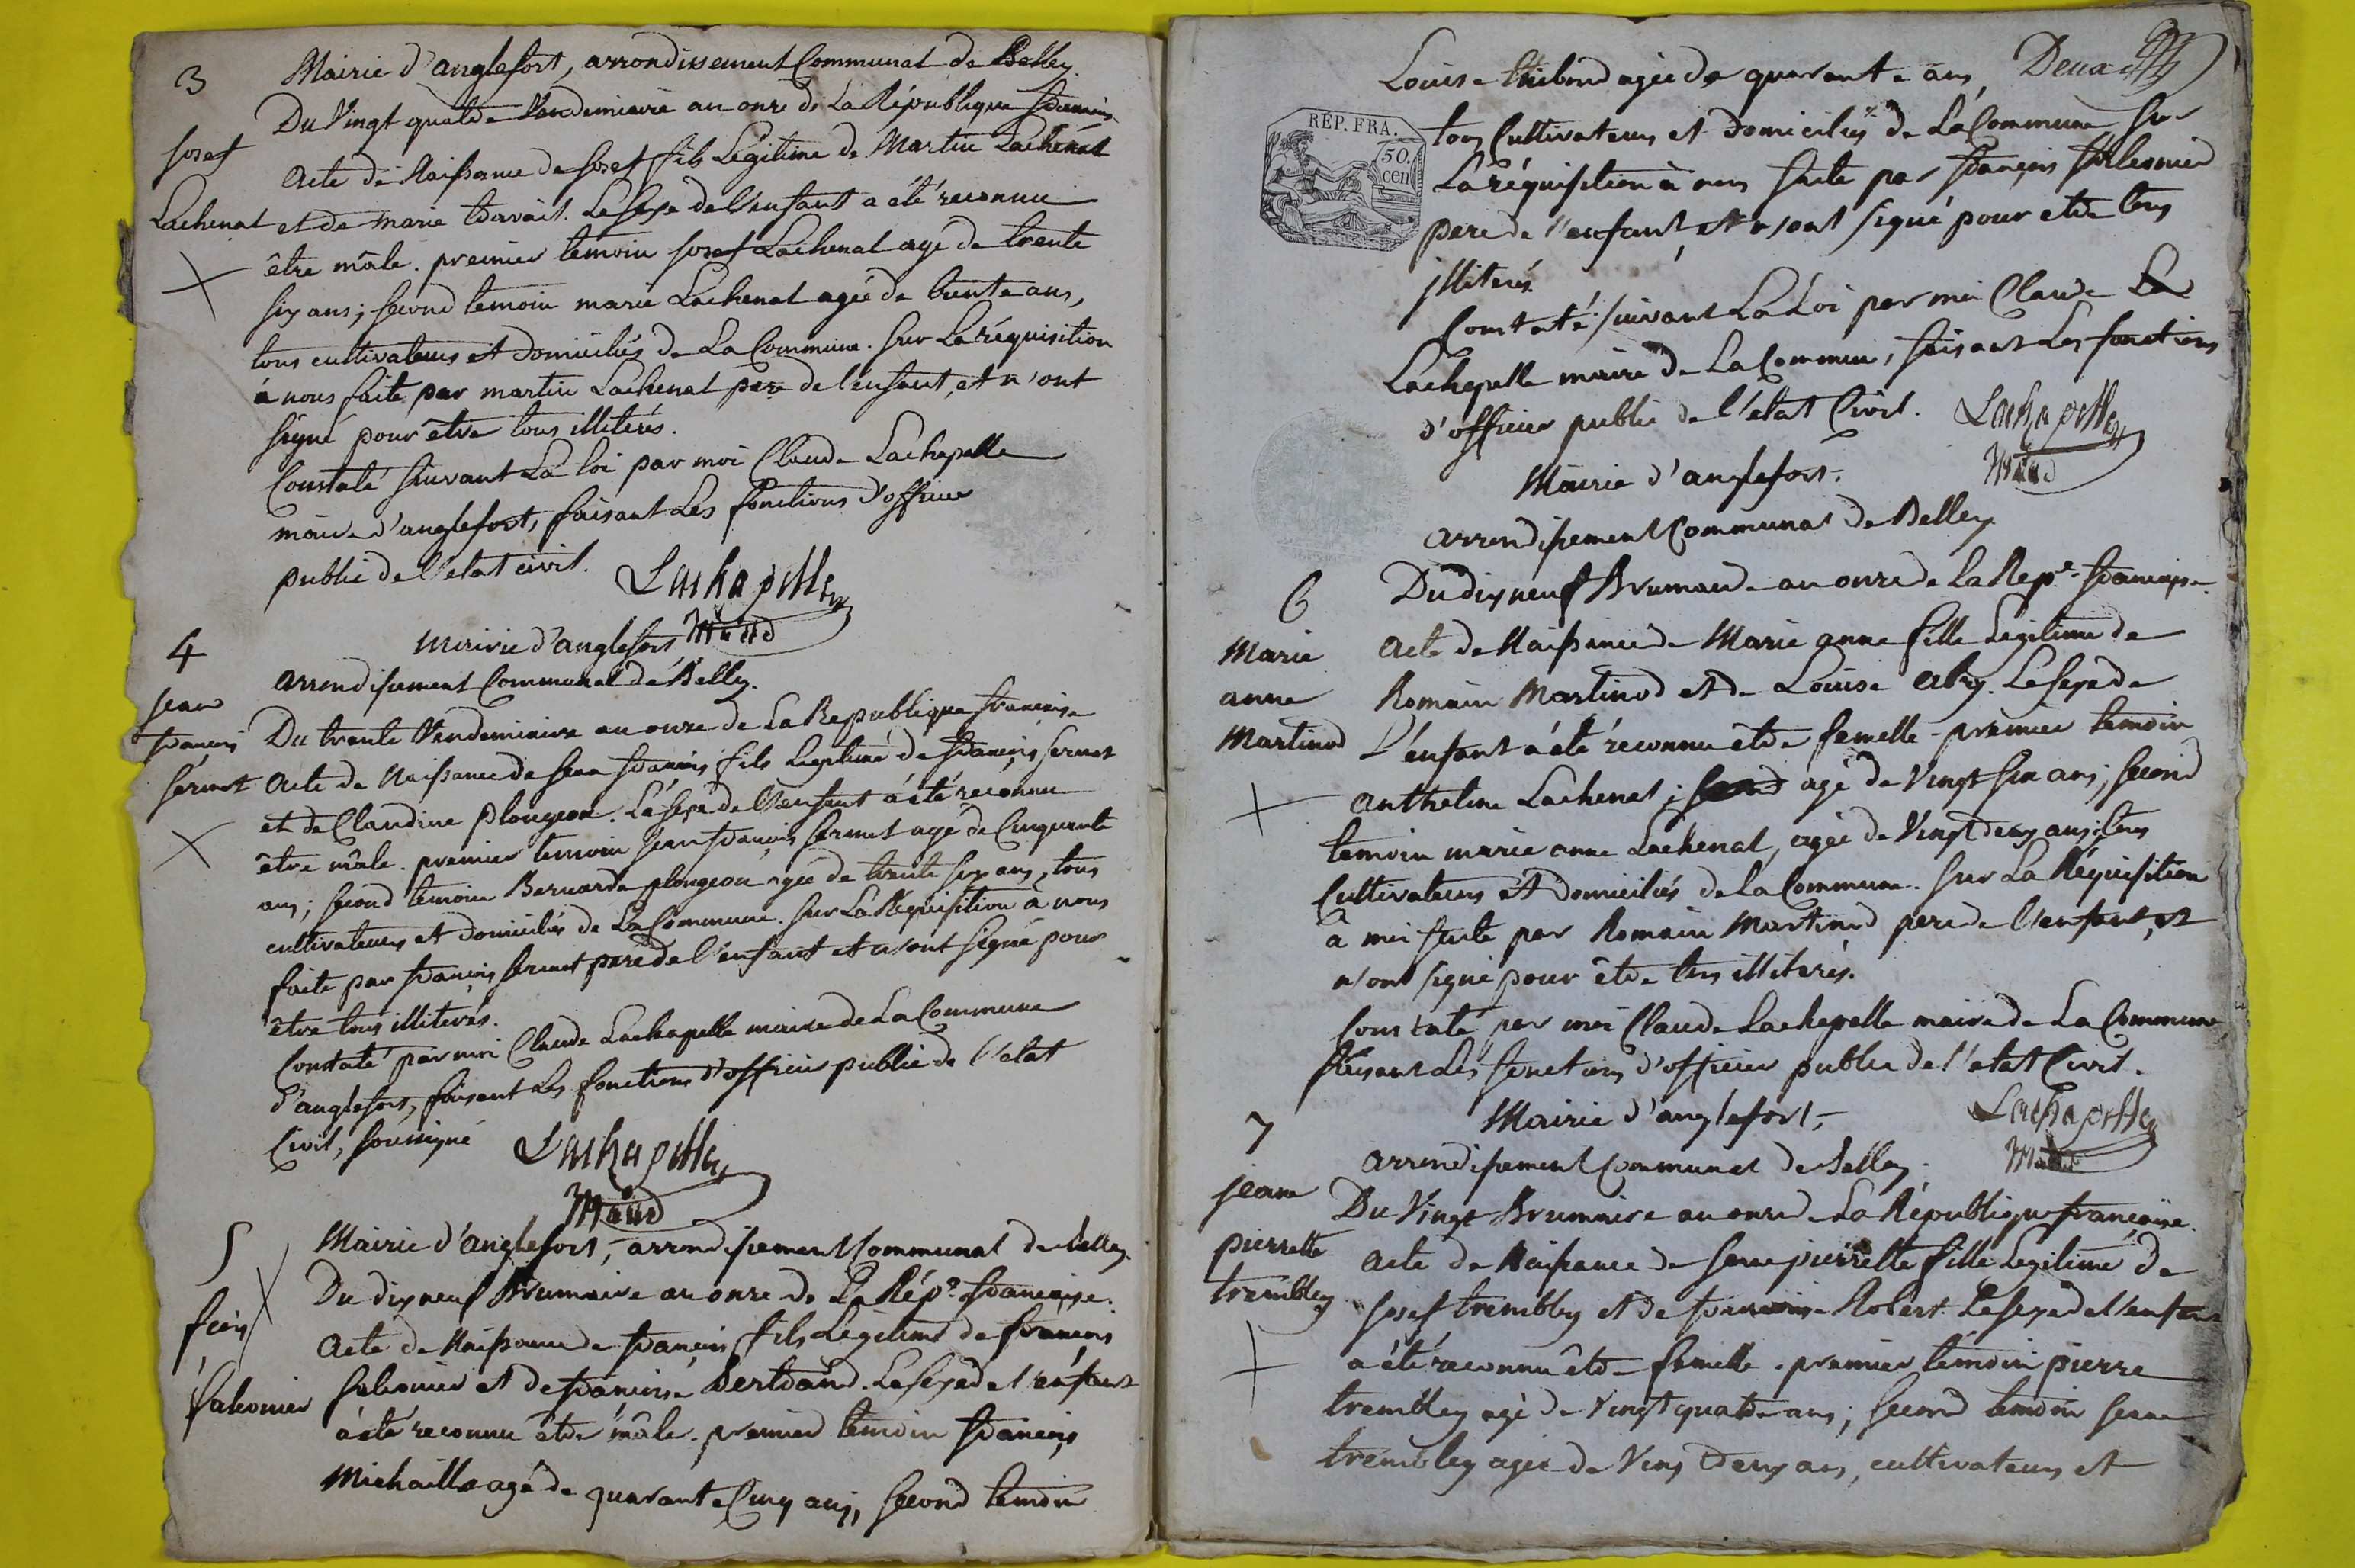 3
Mairie d'anglefort, arrondissement Communal de Belley.
Du Vingt quatre Vendemiaire an onze de La République françoise
josef
Acte de Naissance de josef fils Légitime de Martin Lachenal
Lachenal
et de marie travait. Le sexe de l'enfant a été reconnu
être mâle. premier temoin josef Lachenal agé de trente
six ans; second temoin marie Lachenal agée de trente ans,
tous cultivateurs et domiciliés de La Commune. Sur La réquisition
à nous faite par martin Lachenal pere de l'enfant, et n'ont
signé pour être tous illiterés.
Constaté suivant La loi par moi Claude Lachapelle
maire d'anglefort, faisant Les fonctions d'officier
public de l'etat civil.
Lachapelle
Maire
4
Mairie d'anglefort
arrondissement Communal de Belley.
jean
françois
sermet
Du trente Vendemiaire an onze de La Republique françoise
Acte de Naissance de jean françois fils Legitime de françois sermet
et de Claudine plongeon. Le sexe de l'enfant a été reconnu
être mâle. premier temoin jean françois sermet agé de Cinquante
ans; second temoin Bernarde plongeon agée de trente six ans, tous
cultivateurs et domiciliés de La Commune. Sur La Réquisition à nous
faite par françois sermet pere de l'enfant et n'ont signé pour
être tous illiterés.
Constaté par moi Claude Lachapelle maire de La Commune
d'anglefort, faisant Les fonctions d'officier public de l'etat
Civil, soussigné
Lachapelle
Maire
5
Mairie d'anglefort, arrondissement Communal de Belley.
Du dix neuf Brumaire an onze de La Rép.e françoise.
falconier
Acte de Naissance de françois fils Légitime de françois
falconier et de françoise Bertrand. Le sexe de l'enfant
a été reconnu être mâle. premier temoin françois
Michaille agé de quarante Cinq ans, second temoin
Deux
Louise agée de quarante ans,
REP. FRA.
50.
cen
tous Cultivateurs et domiciliés de La Commune, sur
La réquisition à nous faite par françois falconier
pere de l'enfant, et n'ont signé pour etre tous
illiterés.
Constaté suivant La Loi par moi Claude La
Lachapelle maire de La Commune, faisant Les fonctions
d'officier public de l'etat Civil.
Lachapelle
Maire
Mairie d'anglefort.
arrondissement Communal de Belley
6
Du dix neuf Brumaire an onze de La Rep.e françoise
Marie
anne
Martinod
Acte de Naissance de Marie anne fille Légitime de
Romain Martinod et de Louise abry. Le sexe de
L'enfant a été reconnu être femelle - premier temoin
anthelme Lachenal; agé de Vingt six ans; second
temoin marie anne Lachenal, agée de Vingt deux ans, tous
Cultivateurs et domiciliés de La Commune. Sur La Réquisition
à moi faite par Romain Martinod pere de l'enfant, et
n'ont signé pour être tous illiterés.
Constaté par moi Claude Lachapelle maire de La Commune
faisant Les fonctions d'officier public de l'etat Civil.
Lachapelle
Maire
7
Mairie d'anglefort,
arrondissement Communal de Belley.
jeanne
pierrette
trembley
Du Vingt Brumaire an onze de La République françoise.
Acte de Naissance de jeanne pierrette fille Legitime de
josef trembley et de françoise Robert. Le sexe de l'enfant
a été reconnu être femelle. premier témoin pierre
trembley agé de vingt quatre ans; second temoin jeanne
trembley agée de Vingt deux ans, cultivateurs et